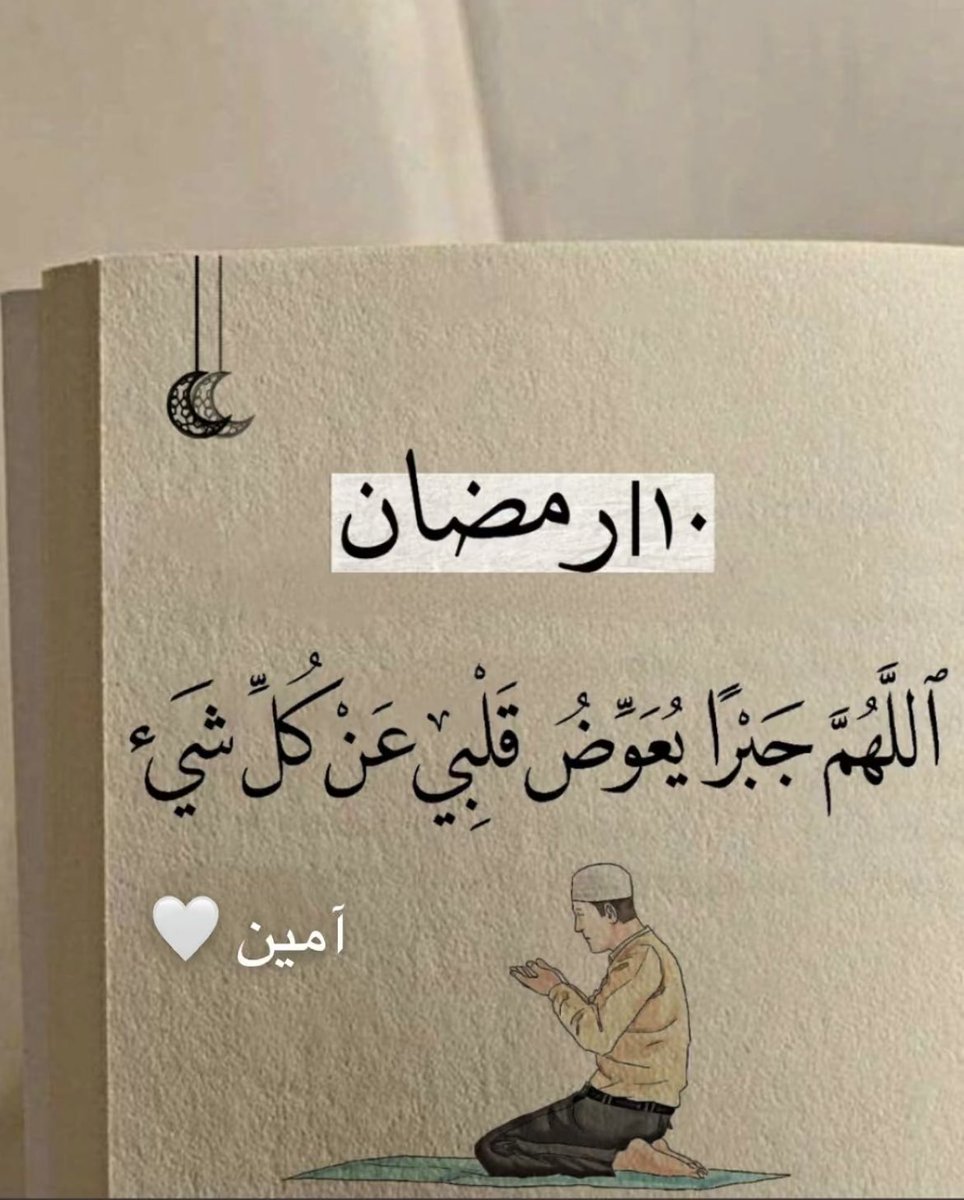 ١٠|رمضان
ٱللَّهُمَّ جَبْرًا يُعَوِّضُ قَلْبِي عَنْ كُلِّ شَيْء
آمين 🤍